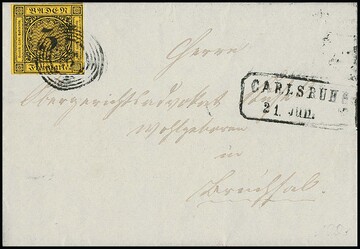 BADEN
3
Freimarke
Herrn
Obergerichtsadvokat
Wohlgeboren
in
Bruchsal.
CARLSRUHE
21. Jun.